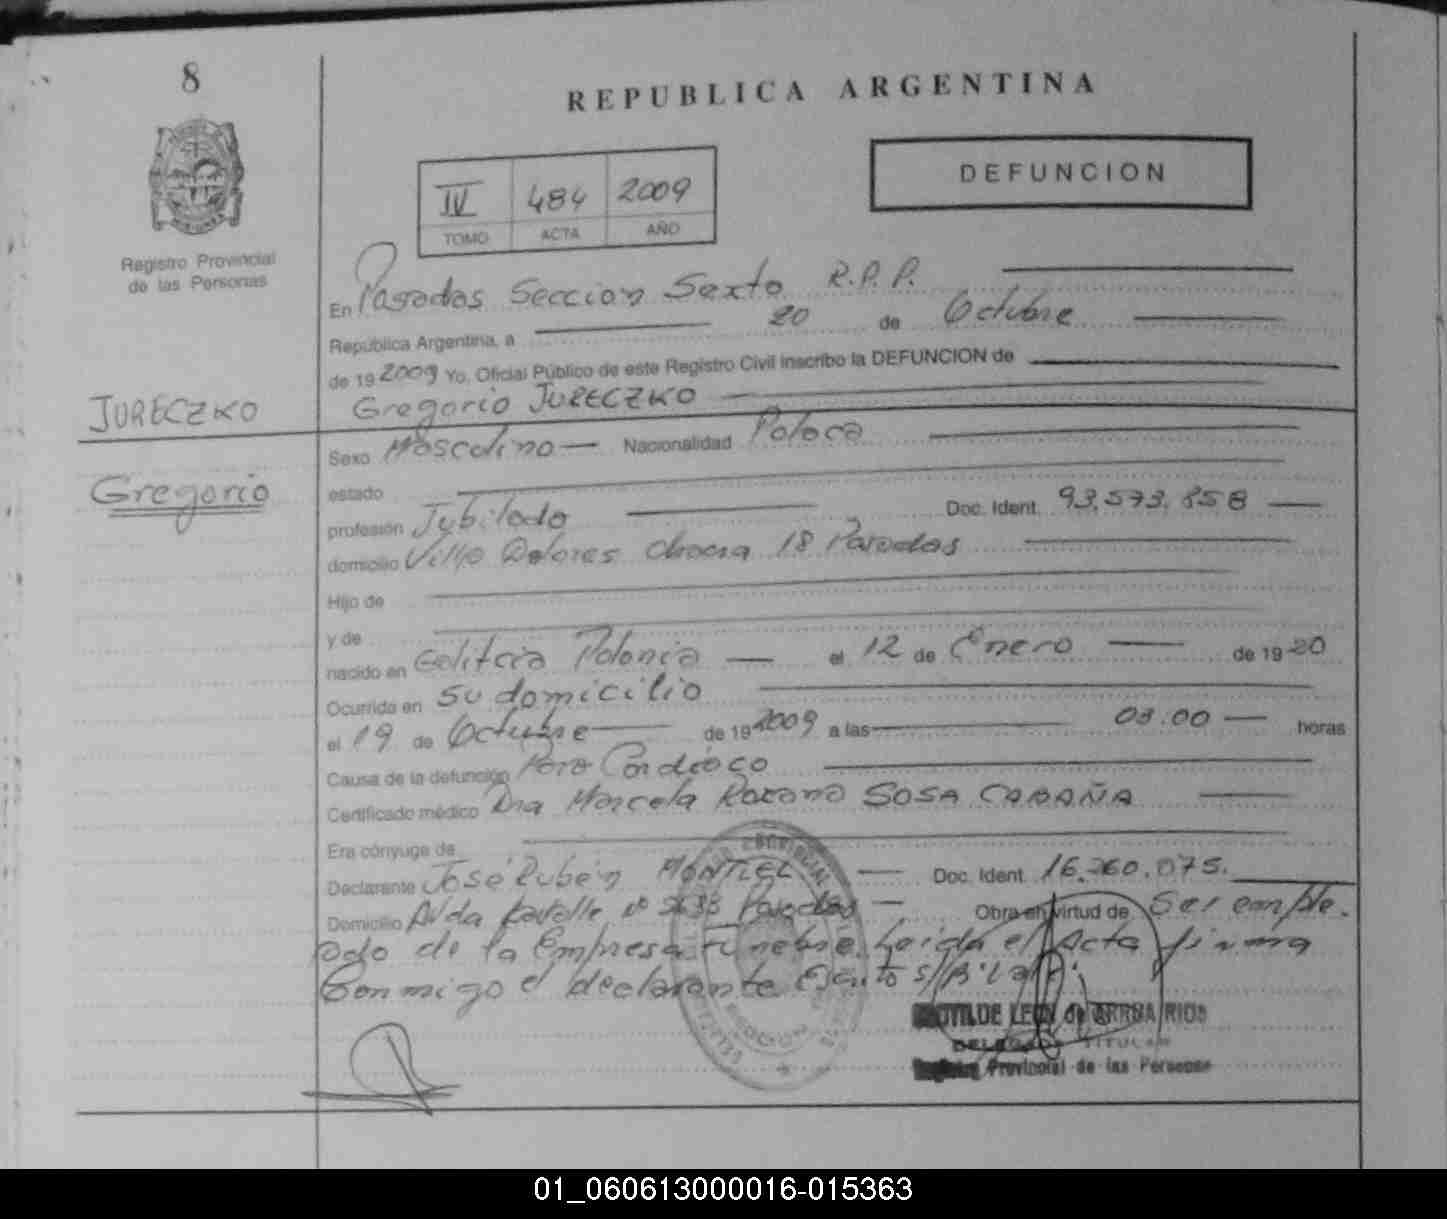 8
REPUBLICA ARGENTINA
IV 484 2009
TOMO ACTA AÑO
DEFUNCION
Registro Provincial
de las Personas
En Posadas Seccion Sexta R.P.P.
República Argentina, a 20 de Octubre
de 19 2009 Yo, Oficial Público de este Registro Civil inscribo la DEFUNCION de
JURECZKO
Gregorio JURECZKO
Gregorio
Sexo Masculino Nacionalidad Polaca
estado
profesión Jubilado Doc. Ident. 93.573.858
domicilio Villa Dolores chacra 18 Posadas
Hijo de
y de
nacido en Polonia el 12 de Enero de 19 20
Ocurrida en su domicilio
el 19 de Octubre de 19 2009 a las 03.00 horas
Causa de la defunción Paro Cardiaco
Certificado médico Dra Marcela Roxana SOSA CABAÑA
Era cónyuge de
Declarante José Rubén MONTIEL Doc. Ident. 16.260.075.
Domicilio Avda Lavalle Nº Posadas Obra en virtud de Ser emple.
ado de la Empresa Funebre. Leida el Acta firma
Conmigo el declarante Escrito
DELEGADA TITULAR
Registro Provincial de las Personas
01_060613000016-015363